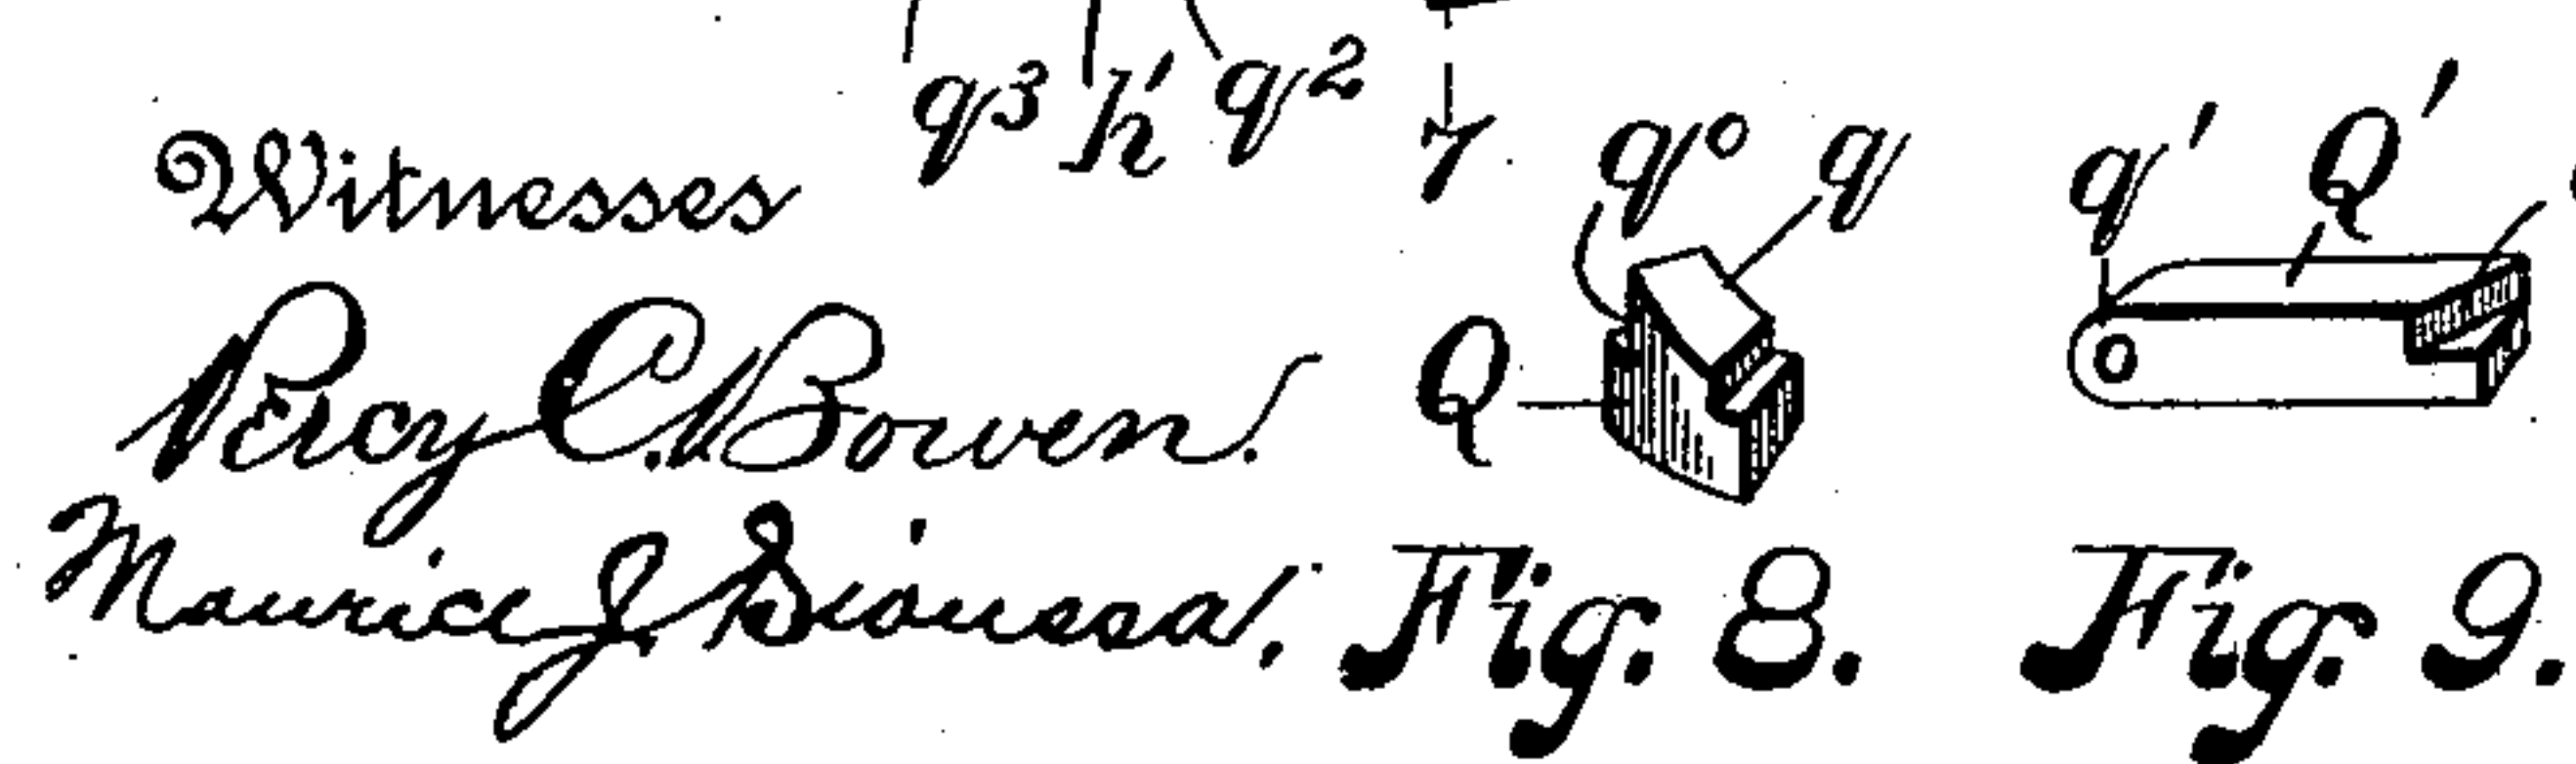 q³ h' q² 7
Witnesses
q° q q' Q'
Percy C. Bowen.
Q
Maurice J. Sioussa.
Fig. 8. Fig. 9.